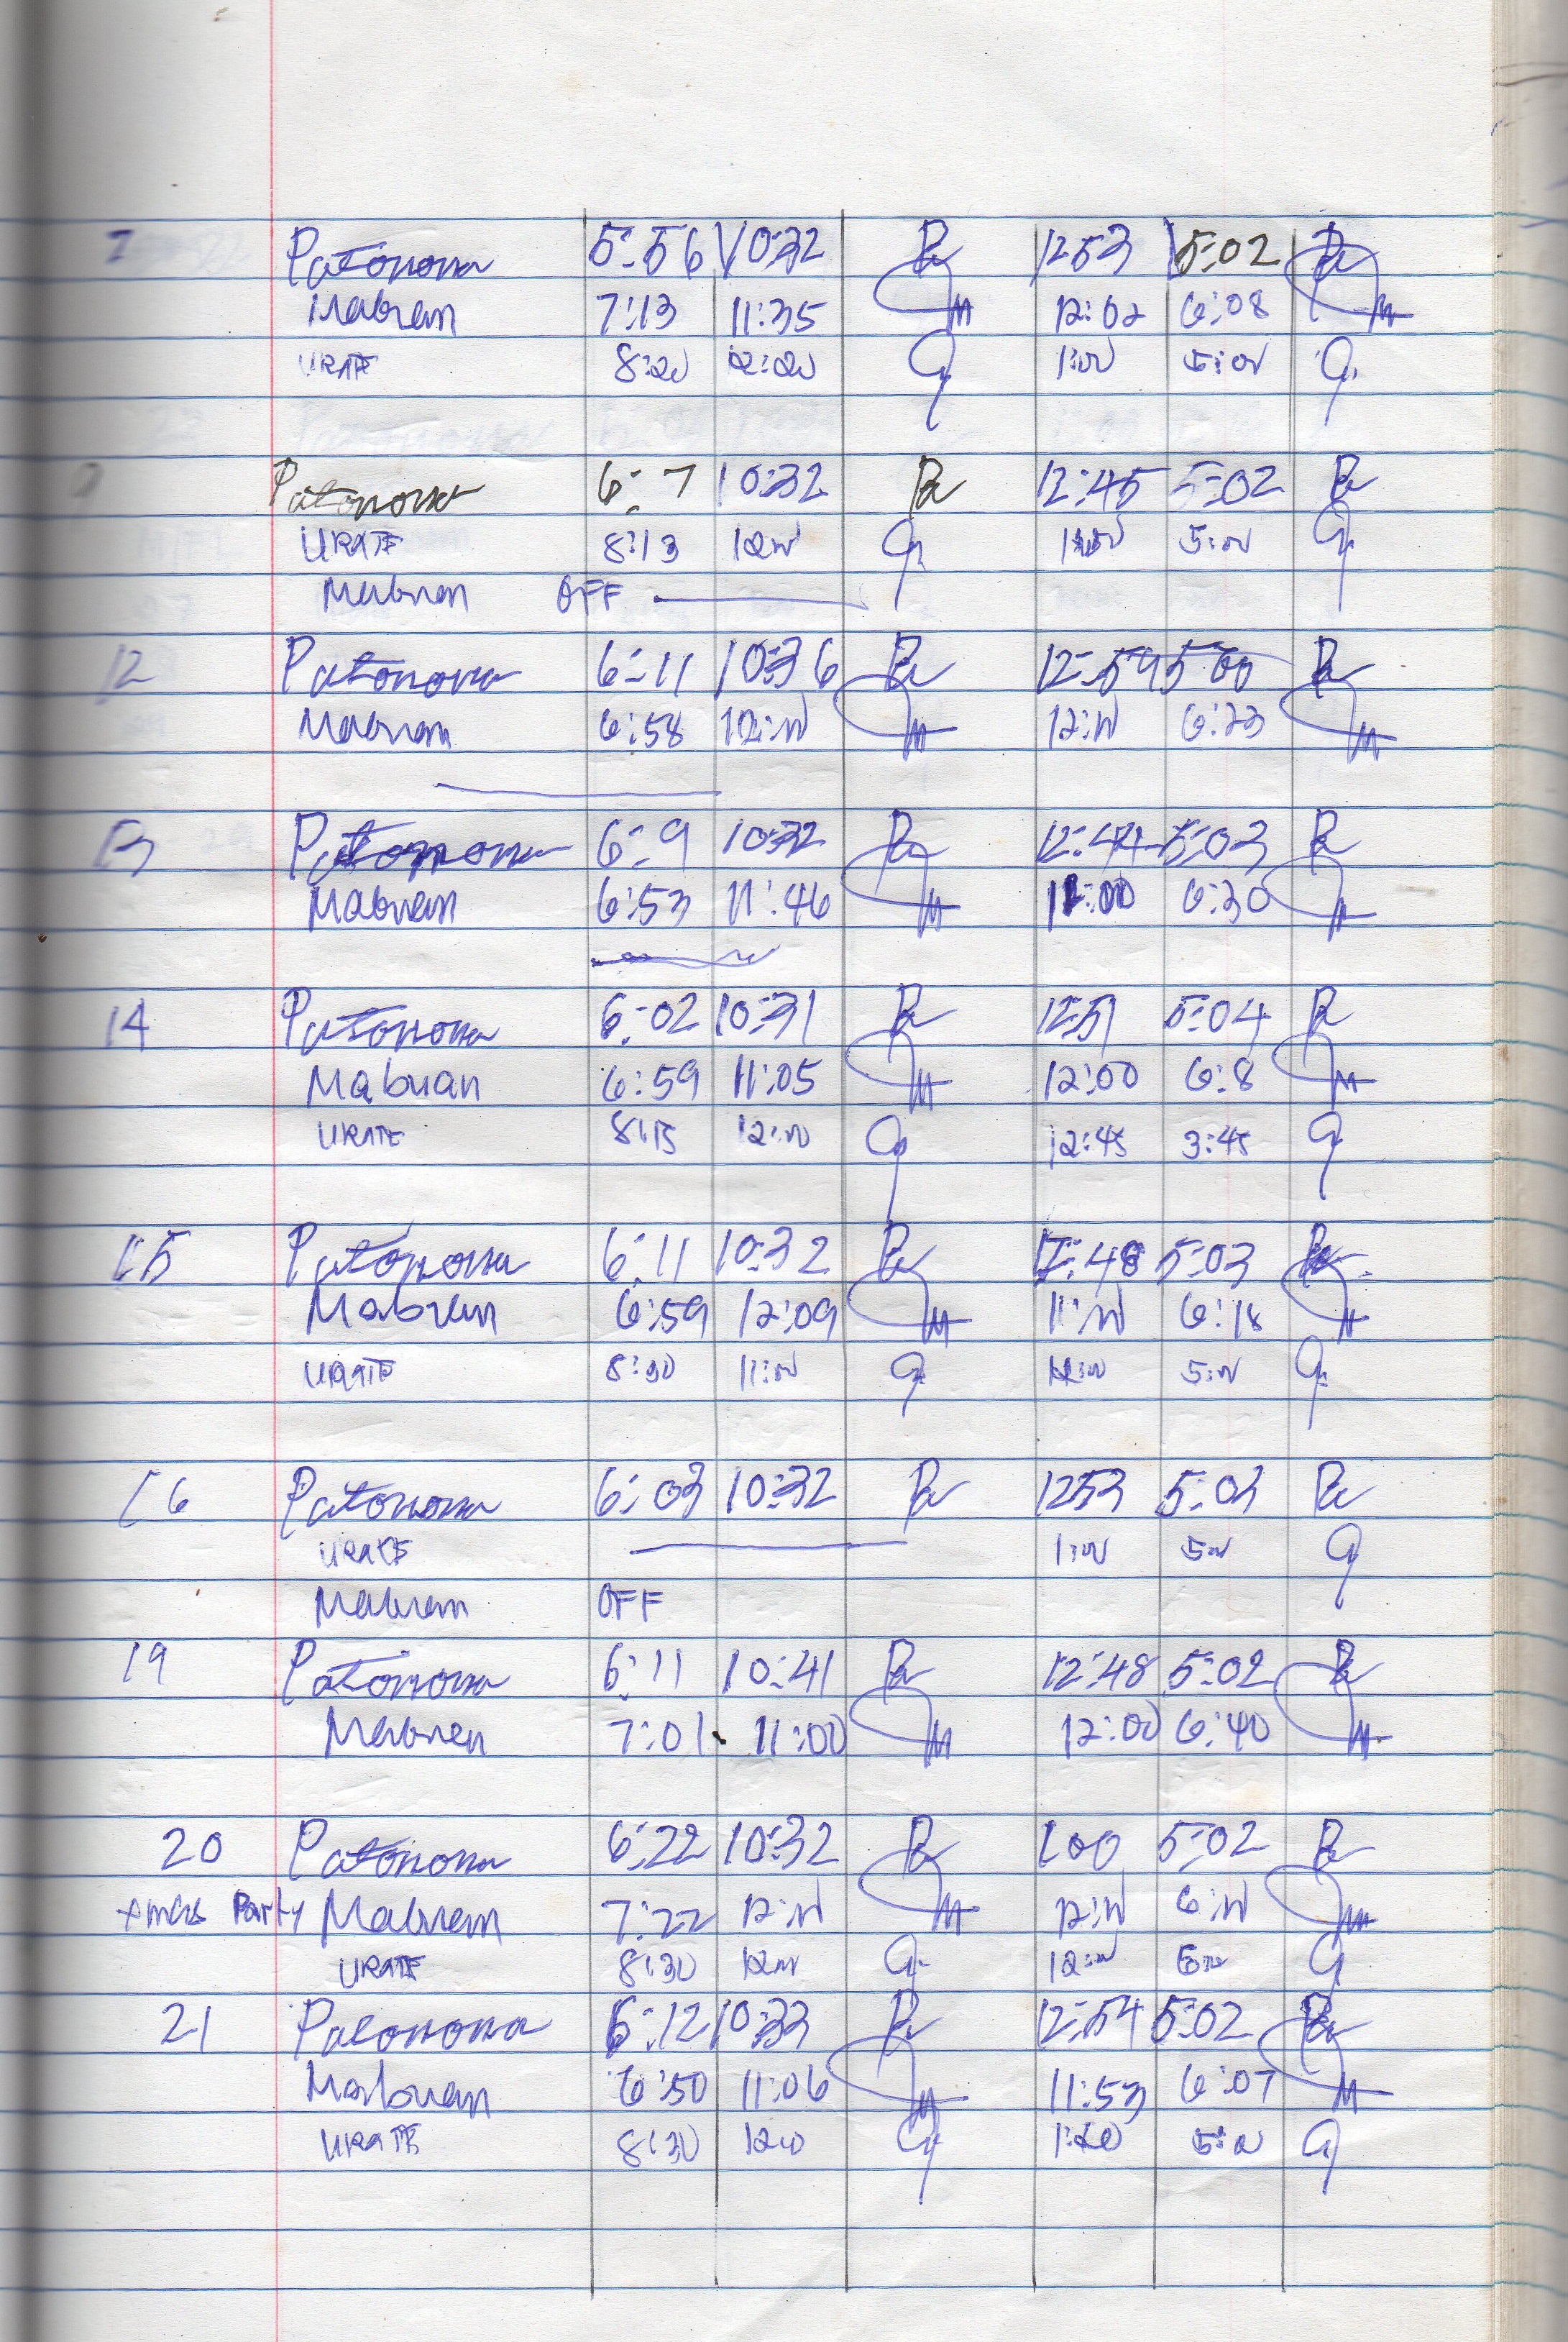 7 Patonona 5:56 10:32 Pa 12:53 5:02 Pa
Mabuan 7:13 11:35 M 12:02 6:08 M
URATE 8:20 12:20 1:00 5:00
Patonona 6:7 10:32 Pa 12:45 5:02 Pa
URATE 8:13 1200 5:00
Mabuan OFF
12 Patonona 6:11 10:36 Pa 12:54 5:00 Pa
Mabuan 6:58 12:00 M 12:00 6:23 M
13 Patonona 6:9 10:32 Pa 12:44 5:03 Pa
Mabuan 6:53 11:46 M 12:00 6:30 M
14 Patonona 6:02 10:31 Pa 12:51 5:04 Pa
Mabuan 6:59 11:05 M 12:00 6:8 M
URATE 8:15 12:00 12:45 3:45
15 Patonona 6:11 10:32 Pa 12:48 5:03 Pa
Mabuan 6:59 12:09 M 11:00 6:18 M
URATE 8:30 11:00 5:00
16 Patonona 6:03 10:32 Pa 12:53 5:03 Pa
URATE 1:00 5:00
Mabuan OFF
19 Patonona 6:11 10:41 Pa 12:48 5:02 Pa
Mabuan 7:01 11:00 M 12:00 6:40 M
20 Patonona 6:22 10:32 Pa 1:00 5:02 Pa
xmas Party Mabuan 7:22 12:00 M 12:00 6:00 M
URATE 8:30 1200 12:00
21 Patonona 6:12 10:33 Pa 12:54 5:02 Pa
Mabuan 6:50 11:06 M 11:53 6:07 M
URATE 8:30 1200 5:00